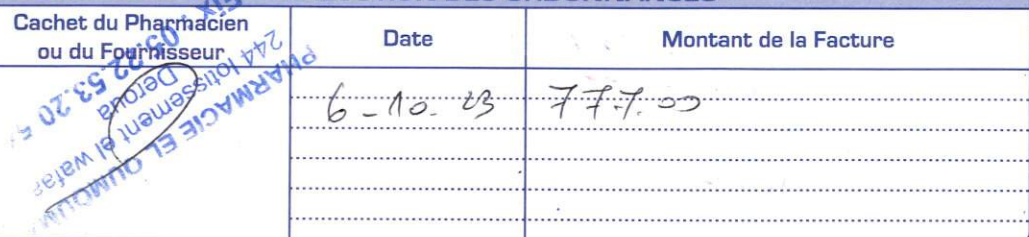 Cachet du Pharmacien
ou du Fournisseur
Date
Montant de la Facture
PHARMACIE EL OUMOUM
244 lotissement el wafaa
Deroua
05.22.53.20
6-10-23
777.00